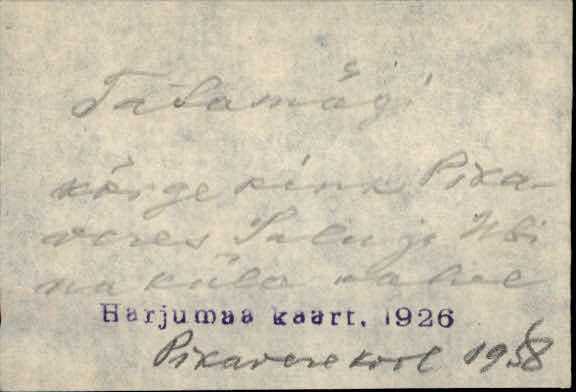 Tabamägi
kõrge kink Pika-
veres Salu ja Ubi
na küla vahel
Harjumaa kaart, 1926
Pikavere kool 1958